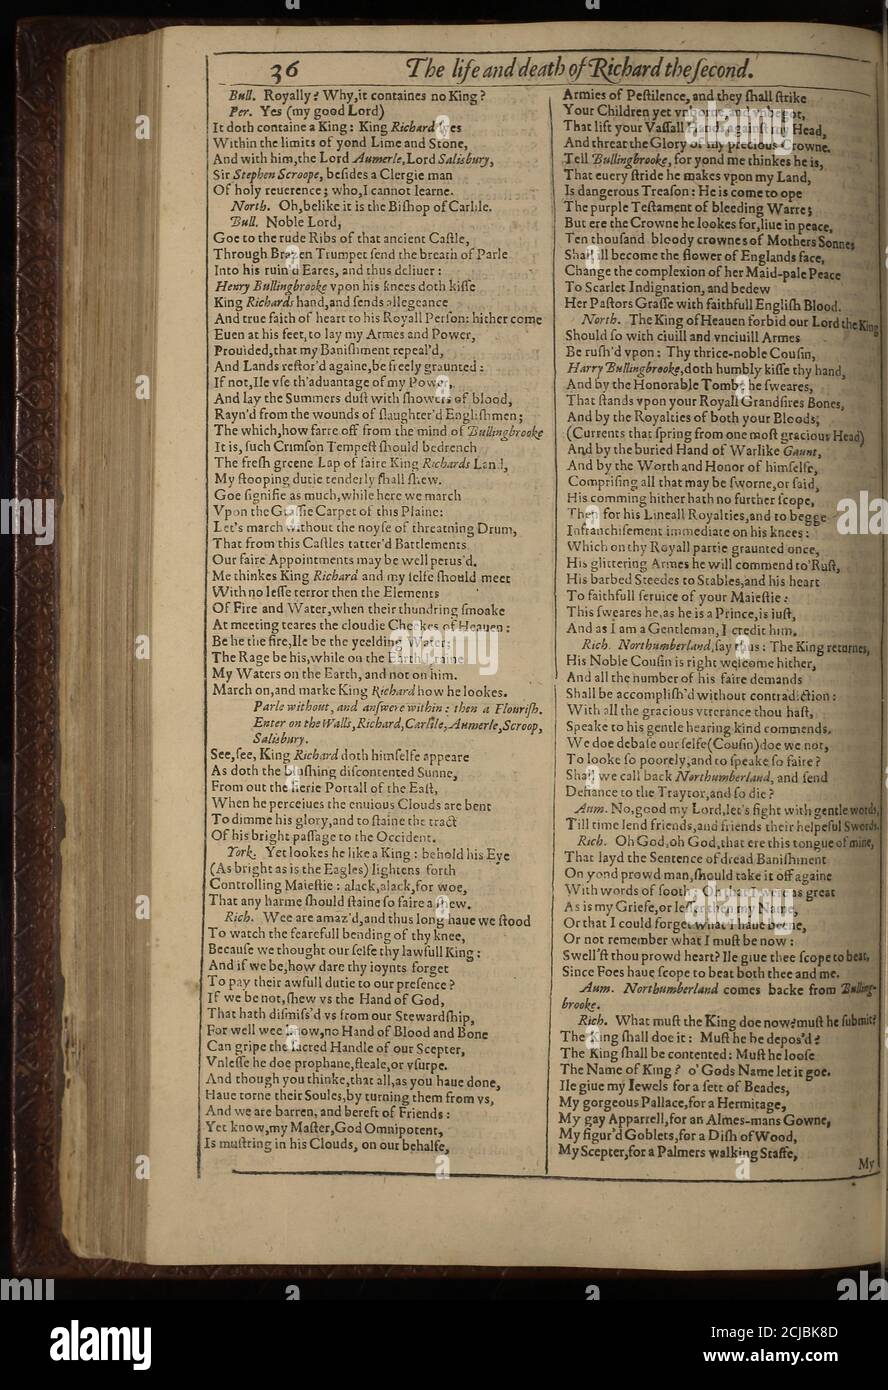 36
The life and death of Richard the ſecond.
Bull. Royally? Why, it containes no King?
Per. Yes (my good Lord)
It doth containe a King: King Richard lyes
Within the limits of yond Lime and Stone,
And with him, the Lord Aumerle, Lord Salisbury,
Sir Stephen Scroope, beſides a Clergie man
Of holy reuerence; who, I cannot learne.
North. Oh, belike it is the Biſhop of Carlile.
Bull. Noble Lord,
Goe to the rude Ribs of that ancient Caſtle,
Through Brazen Trumpet ſend the breath of Parle
Into his ruin'd Eares, and thus deliuer:
Henry Bullingbrooke vpon his knees doth kiſſe
King Richards hand, and ſends allegeance
And true faith of heart to his Royall Perſon: hither come
Euen at his feet, to lay my Armes and Power,
Prouided, that my Baniſhment repeal'd,
And Lands reſtor'd againe, be freely graunted:
If not, Ile vſe th'aduantage of my Power,
And lay the Summers duſt with ſhowers of blood,
Rayn'd from the wounds of ſlaughter'd Engliſhmen;
The which, how farre off from the mind of Bullingbrooke
It is, ſuch Crimſon Tempeſt ſhould bedrench
The freſh greene Lap of faire King Richards Land,
My ſtooping dutie tenderly ſhall ſhew.
Goe ſignifie as much, while here we march
Vpon the Graſſie Carpet of this Plaine:
Let's march without the noyſe of threatning Drum,
That from this Caſtles tatter'd Battlements
Our faire Appointments may be well perus'd.
Me thinkes King Richard and my ſelfe ſhould meet
With no leſſe terror then the Elements
Of Fire and Water, when their thundring ſmoake
At meeting teares the cloudie Cheekes of Heauen:
Be he the fire, Ile be the yeelding Water;
The Rage be his, while on the Earth Ile raine
My Waters on the Earth, and not on him.
March on, and marke King Richard how he lookes.
Parle without, and anſwere within: then a Flouriſh.
Enter on the Walls, Richard, Carlile, Aumerle, Scroop,
Salisbury.
See, ſee, King Richard doth himſelfe appeare
As doth the bluſhing diſcontented Sunne,
From out the fierie Portall of the Eaſt,
When he perceiues the enuious Clouds are bent
To dimme his glory, and to ſtaine the tract
Of his bright paſſage to the Occident.
York. Yet lookes he like a King: behold his Eye
(As bright as is the Eagles) lightens forth
Controlling Maieſtie: alack, alack, for woe,
That any harme ſhould ſtaine ſo faire a ſhew.
Rich. Wee are amaz'd, and thus long haue we ſtood
To watch the fearefull bending of thy knee,
Becauſe we thought our ſelfe thy lawfull King:
And if we be, how dare thy ioynts forget
To pay their awfull dutie to our preſence?
If we be not, ſhew vs the Hand of God,
That hath diſmiſs'd vs from our Stewardſhip,
For well wee know, no Hand of Blood and Bone
Can gripe the ſacred Handle of our Scepter,
Vnleſſe he doe prophane, ſteale, or vſurpe.
And though you thinke, that all, as you haue done,
Haue torne their Soules, by turning them from vs,
And we are barren, and bereft of Friends:
Yet know, my Maſter, God Omnipotent,
Is muſtring in his Clouds, on our behalfe,
Armies of Peſtilence, and they ſhall ſtrike
Your Children yet vnborne, and vnbegot,
That lift your Vaſſall Hands againſt my Head,
And threat the Glory of my precious Crowne.
Tell Bullingbrooke, for yond me thinkes he is,
That euery ſtride he makes vpon my Land,
Is dangerous Treaſon: He is come to ope
The purple Teſtament of bleeding Warre;
But ere the Crowne he lookes for, liue in peace,
Ten thouſand bloody crownes of Mothers Sonnes
Shall ill become the flower of Englands face,
Change the complexion of her Maid-pale Peace
To Scarlet Indignation, and bedew
Her Paſtors Graſſe with faithfull Engliſh Blood.
North. The King of Heauen forbid our Lord the King
Should ſo with ciuill and vnciuill Armes
Be ruſh'd vpon: Thy thrice-noble Couſin,
Harry Bullingbrooke, doth humbly kiſſe thy hand,
And by the Honorable Tombe he ſweares,
That ſtands vpon your Royall Grandſires Bones,
And by the Royalties of both your Bloods;
(Currents that ſpring from one moſt gracious Head)
And by the buried Hand of Warlike Gaunt,
And by the Worth and Honor of himſelfe,
Compriſing all that may be ſworne, or ſaid,
His comming hither hath no further ſcope,
Then for his Lineall Royalties, and to begge
Infranchiſement immediate on his knees:
Which on thy Royall partie graunted once,
His glittering Armes he will commend to'Ruſt,
His barbed Steedes to Stables, and his heart
To faithfull ſeruice of your Maieſtie:
This ſweares he, as he is a Prince, is iuſt,
And as I am a Gentleman, I credit him.
Rich. Northumberland, ſay thus: The King returnes,
His Noble Couſin is right welcome hither,
And all the number of his faire demands
Shall be accompliſh'd without contradiction:
With all the gracious vtterance thou haſt,
Speake to his gentle hearing kind commends.
We doe debaſe our ſelfe (Couſin) doe we not,
To looke ſo poorely, and to ſpeake ſo faire?
Shall we call back Northumberland, and ſend
Defiance to the Traytor, and ſo die?
Aum. No, good my Lord, let's fight with gentle words,
Till time lend friends, and friends their helpeful Swords.
Rich. Oh God, oh God, that ere this tongue of mine,
That layd the Sentence of dread Baniſhment
On yond prowd man, ſhould take it off againe
With words of ſooth: Oh that I were as great
As is my Griefe, or leſſer then my Name,
Or that I could forget what I haue beene,
Or not remember what I muſt be now:
Swell'ſt thou prowd heart? Ile giue thee ſcope to beat,
Since Foes haue ſcope to beat both thee and me.
Aum. Northumberland comes backe from Bulling-
brooke.
Rich. What muſt the King doe now? muſt he ſubmit?
The King ſhall doe it: Muſt he be depos'd?
The King ſhall be contented: Muſt he looſe
The Name of King? o' Gods Name let it goe.
Ile giue my Iewels for a ſett of Beades,
My gorgeous Pallace, for a Hermitage,
My gay Apparrell, for an Almes-mans Gowne,
My figur'd Goblets, for a Diſh of Wood,
My Scepter, for a Palmers walking Staffe,
My
alamy
Image ID: 2CJBK8D
www.alamy.com